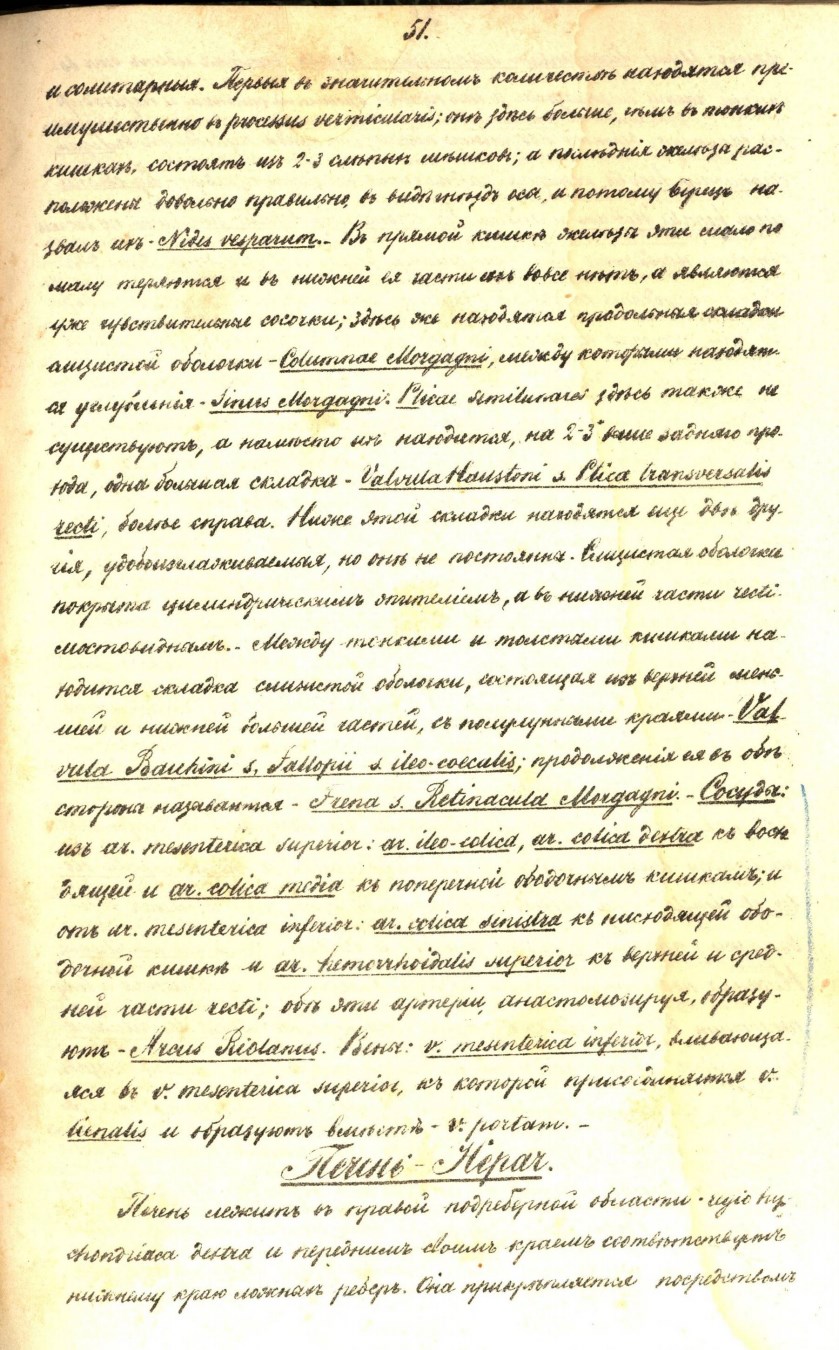 51.
и солитарныя. Первыя въ значительномъ количествѣ находятся пре-
имущественно въ processus vermicularis; онѣ здѣсь больше, чѣмъ въ тонкихъ
кишкахъ, состоятъ изъ 2-3 слѣпыхъ мѣшковъ; а послѣднія железы рас-
положены довольно правильно, въ видѣ гнѣздъ осъ, и потому на-
звалъ ихъ - Nides vesparum. - Въ прямой кишкѣ железы эти мало по
малу теряются и въ нижней ея части ихъ вовсе нѣтъ, а являются
уже чувствительные сосочки; здѣсь же находятся продольныя складки
слизистой оболочки - Columnae Morgagni, между которыми находят-
ся углубленія - Sinus Morgagni. Plicae semilunares здѣсь также не
существуютъ, а намѣсто ихъ находится, на 2-3" выше задняго про-
хода, одна большая складка - Valvula Haustoni s. Plica transversalis
recti, болѣе справа. Ниже этой складки находятся еще двѣ дру-
гія, удобоизглаживаемыя, но онѣ не постоянны. Слизистая оболочка
покрыта цилиндрическимъ эпителіемъ, а въ нижней части recti -
мостовиднымъ. - Между тонкими и толстыми кишками на-
ходится складка слизистой оболочки, состоящая изъ верхней мень-
шей и нижней большей частей, съ полулунными краями - Val-
vula Bauhini s. Fallopii s ileo-coecalis; продолженія ея въ обѣ
стороны называются - Frena s. Retinacula Morgagni. - Сосуды:
изъ ar. mesenterica superior: ar. ileo-colica, ar. colica dextra къ восхо-
дящей и ar. colica media къ поперечной ободочнымъ кишкамъ; и
отъ ar. mesenterica inferior: ar. colica sinistra къ нисходящей обо-
дочной кишкѣ и ar. hemorrhoidalis superior къ верхней и сред-
ней части recti; обѣ эти артеріи, анастомозируя, образу-
ютъ - Arcus Riolanus. Вены: v. mesenterica inferior, вливающа-
яся въ v. mesenterica superior, къ которой присоединяется v.
lienalis и образуютъ вмѣстѣ - v. portam. -
Печень - Hepar.
Печень лежитъ въ правой подреберной области - regio hypo-
chondriaca dextra и переднимъ своимъ краемъ соотвѣтствуетъ
нижнему краю ложныхъ реберъ. Она прикрѣпляется посредствомъ